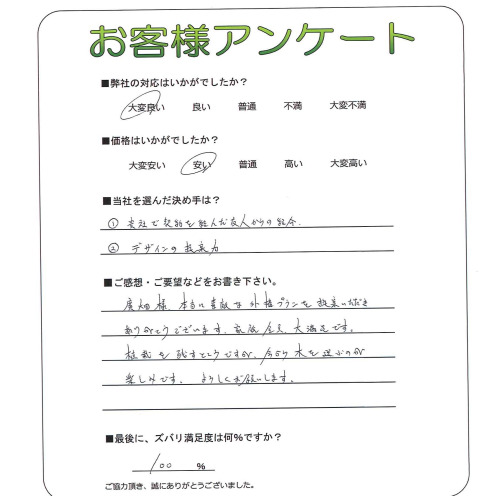 お客様アンケート
■弊社の対応はいかがでしたか？
大変良い 良い 普通 不満 大変不満
■価格はいかがでしたか？
大変安い 安い 普通 高い 大変高い
■当社を選んだ決め手は？
① 貴社で契約を結んだ友人からの紹介.
② デザインの提案力
■ご感想・ご要望などをお書き下さい。
廣畑様、本当に素敵な外構プランを提案いただき
ありがとうございます。家族全員、大満足です。
植栽を残すところですが、今から木を選ぶのが
楽しみです。 よろしくお願いします。
■最後に、ズバリ満足度は何％ですか？
100 %
ご協力頂き、誠にありがとうございました。